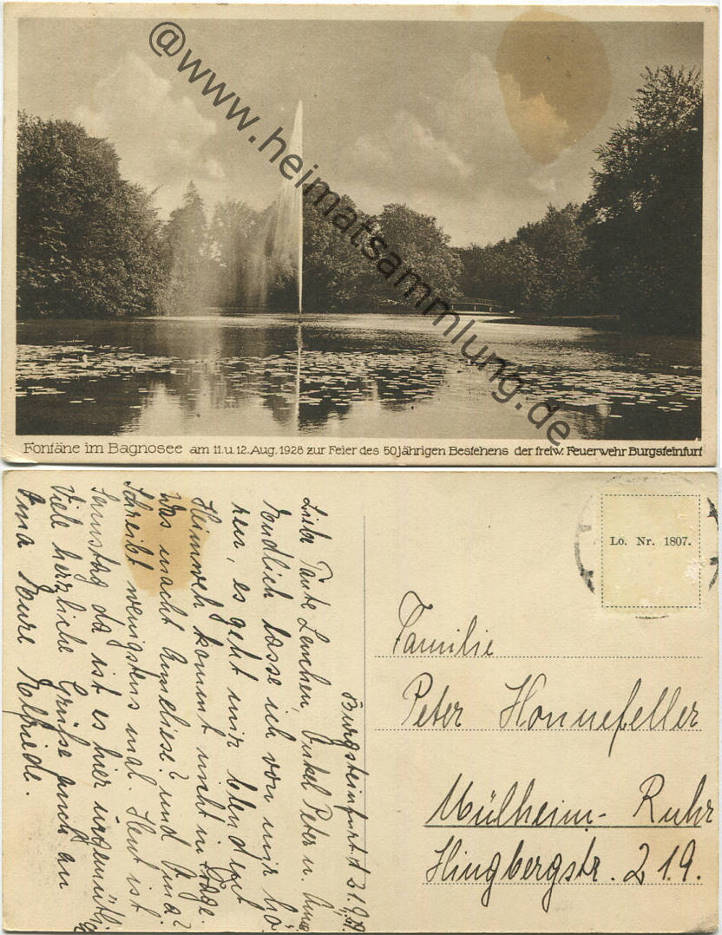 @www.heimatsammlung.de
Fontäne im Bagnosee am 11. u. 12. Aug. 1928 zur Feier des 50jährigen Bestehens der freiw. Feuerwehr Burgsteinfurt
Burgsteinfurt d.
Liebe Tante Lenchen, Onkel Peter u.
Endlich lasse ich von mir hö-
ren, es geht mir
Heimweh kommt nicht in Frage.
Was macht Anneliese? und Oma?
Schreibt wenigstens mal. Heut ist
Samstag da ist es hier ungemütlich
Viele herzliche Grüße auch an
Oma Eure Elfriede.
Lo. Nr. 1807.
Familie
Peter Honnefeller
Mülheim-Ruhr
Hingbergstr. 219.